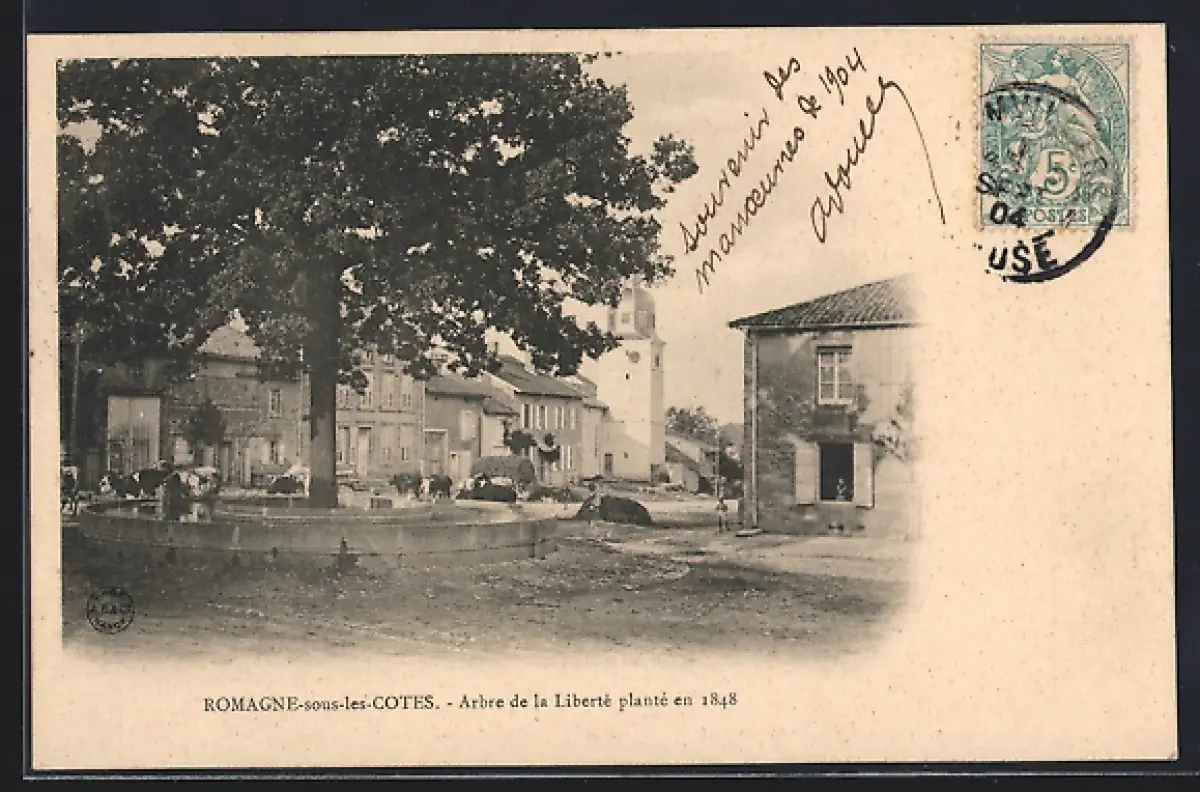 souvenir des
manœuvres de 1904
5
POSTES
04
USE
ROMAGNE-sous-les-COTES. - Arbre de la Liberté planté en 1848